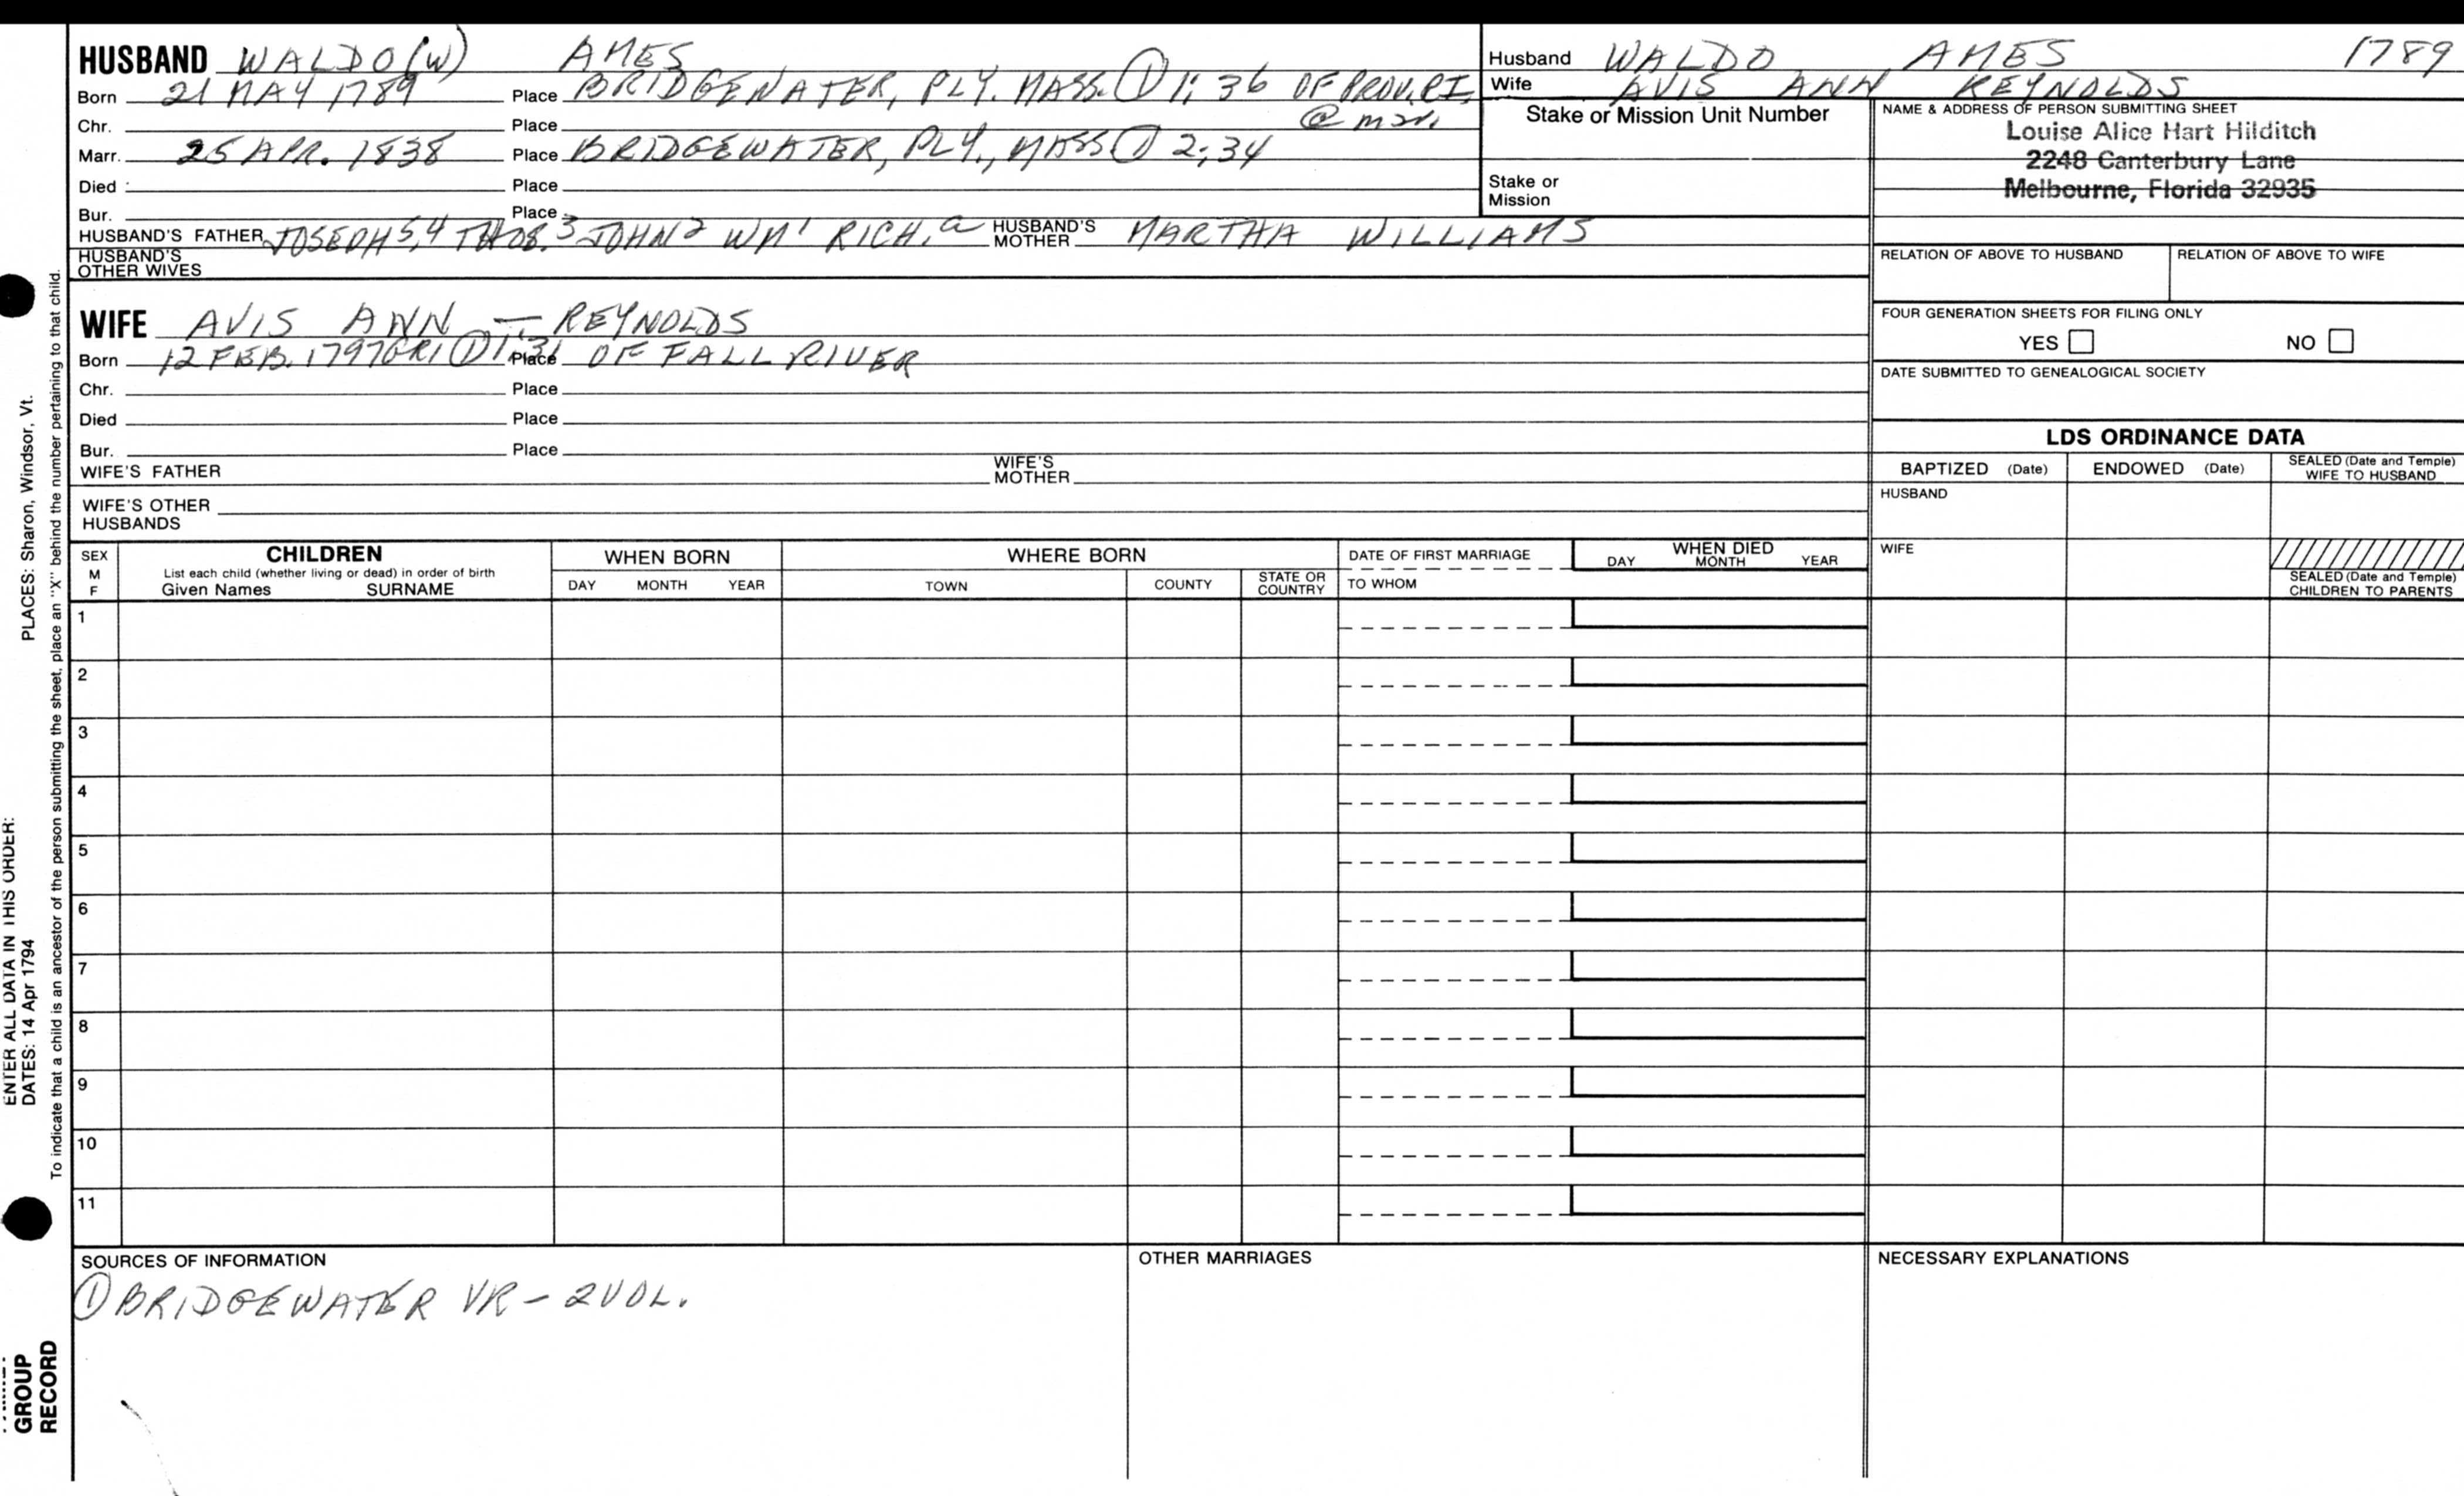 HUSBAND WALDO (W) AMES
Born 21 MAY 1789 Place BRIDGEWATER, PLY. MASS. ① 1; 36 OF PROV. RI.
Chr. Place @ mar.
Marr. 25 APR. 1838 Place BRIDGEWATER, PLY., MASS ① 2; 34
Died Place
Bur. Place
HUSBAND'S FATHER JOSEPH 5,4 THOS.3 JOHN2 WM1 RICH.a HUSBAND'S MOTHER MARTHA WILLIAMS
HUSBAND'S OTHER WIVES
Husband WALDO AMES 1789
Wife AVIS ANN REYNOLDS
Stake or Mission Unit Number
Stake or Mission
NAME & ADDRESS OF PERSON SUBMITTING SHEET
Louise Alice Hart Hilditch
2248 Canterbury Lane
Melbourne, Florida 32935
RELATION OF ABOVE TO HUSBAND RELATION OF ABOVE TO WIFE
FOUR GENERATION SHEETS FOR FILING ONLY
YES NO
DATE SUBMITTED TO GENEALOGICAL SOCIETY
WIFE AVIS ANN — REYNOLDS
Born 12 FEB. 1797 GR1 ① 1; 31 Place OF FALL RIVER
Chr. Place
Died Place
Bur. Place
WIFE'S FATHER WIFE'S MOTHER
WIFE'S OTHER HUSBANDS
LDS ORDINANCE DATA
BAPTIZED (Date) ENDOWED (Date) SEALED (Date and Temple) WIFE TO HUSBAND
HUSBAND
WIFE
SEALED (Date and Temple) CHILDREN TO PARENTS
SEX M F
CHILDREN
List each child (whether living or dead) in order of birth
Given Names SURNAME
WHEN BORN
DAY MONTH YEAR
WHERE BORN
TOWN COUNTY STATE OR COUNTRY
DATE OF FIRST MARRIAGE
TO WHOM
WHEN DIED
DAY MONTH YEAR
1
2
3
4
5
6
7
8
9
10
11
SOURCES OF INFORMATION
① BRIDGEWATER VR - 2 VOL.
OTHER MARRIAGES
NECESSARY EXPLANATIONS
PLACES: Sharon, Windsor, Vt.
ENTER ALL DATA IN THIS ORDER:
DATES: 14 Apr 1794
To indicate that a child is an ancestor of the person submitting the sheet, place an "X" behind the number pertaining to that child.
GROUP
RECORD